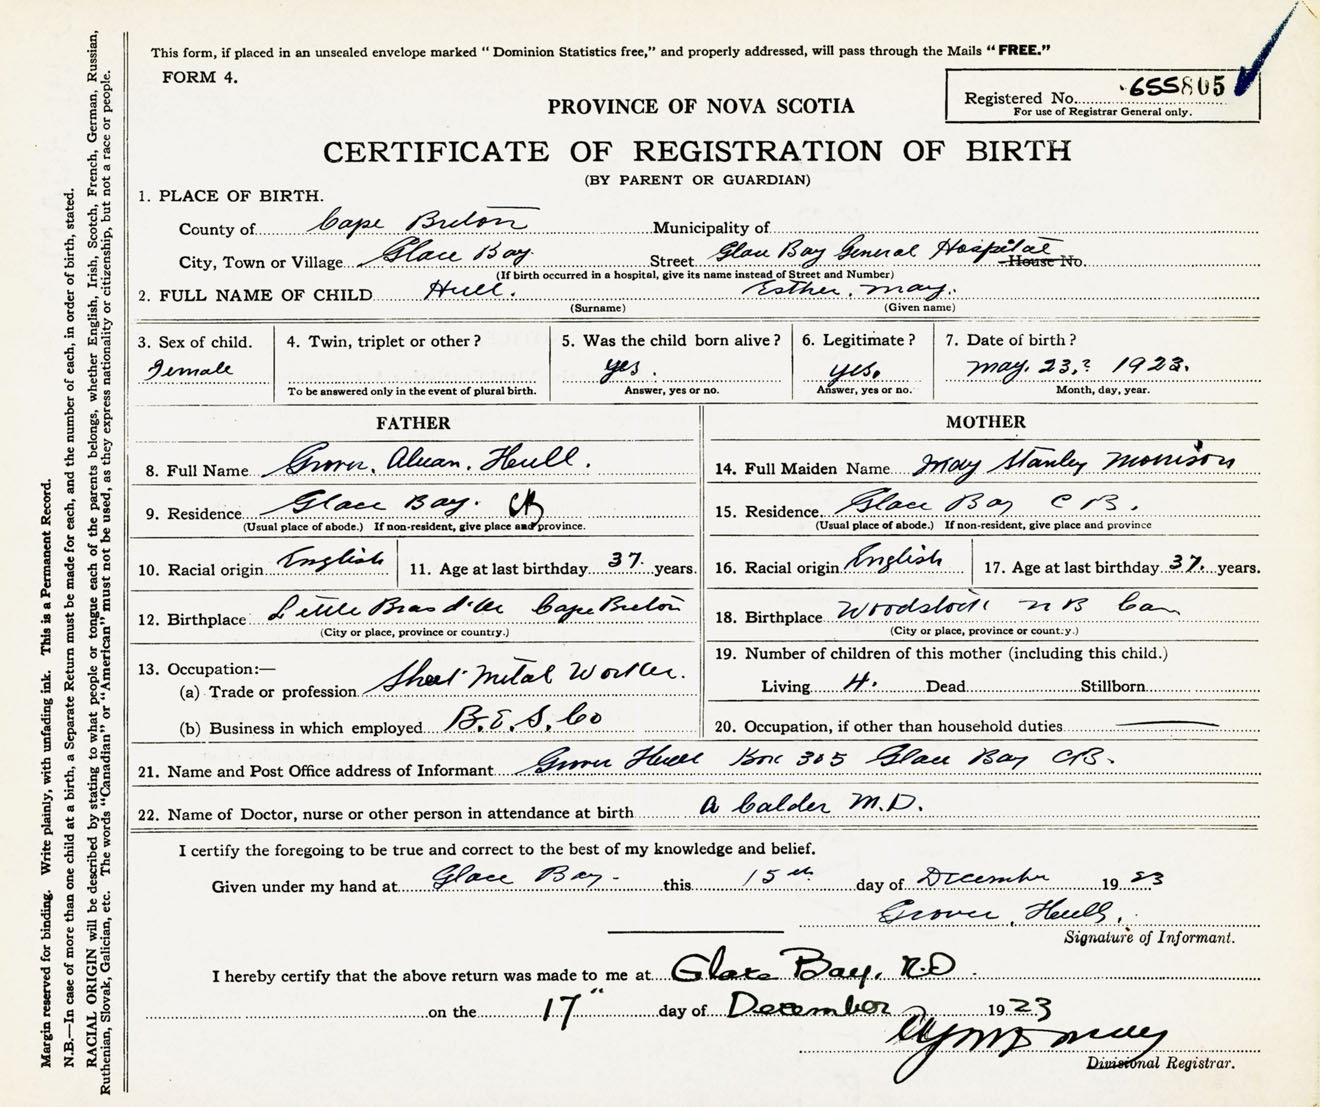 This form, if placed in an unsealed envelope marked "Dominion Statistics free," and properly addressed, will pass through the Mails "FREE."
FORM 4.
Registered No. 655805
For use of Registrar General only.
PROVINCE OF NOVA SCOTIA
CERTIFICATE OF REGISTRATION OF BIRTH
(BY PARENT OR GUARDIAN)
1. PLACE OF BIRTH.
County of Cape Breton Municipality of
City, Town or Village Glace Bay. Street Glace Bay General Hospital House No.
(If birth occurred in a hospital, give its name instead of Street and Number)
2. FULL NAME OF CHILD Hull. Esther. May.
(Surname) (Given name)
3. Sex of child. 4. Twin, triplet or other? 5. Was the child born alive? 6. Legitimate? 7. Date of birth?
Female yes. yes. May. 23. 1923.
To be answered only in the event of plural birth. Answer, yes or no. Answer, yes or no. Month, day, year.
FATHER MOTHER
8. Full Name Grover. Hull. 14. Full Maiden Name May Stanley Morrison
9. Residence Glace Bay. CB 15. Residence Glace Bay C B.
(Usual place of abode.) If non-resident, give place and province. (Usual place of abode.) If non-resident, give place and province
10. Racial origin English 11. Age at last birthday 37 years. 16. Racial origin English 17. Age at last birthday 37 years.
12. Birthplace Little Bras d'Or Cape Breton 18. Birthplace Woodstock N B Can
(City or place, province or country.) (City or place, province or country.)
13. Occupation:— 19. Number of children of this mother (including this child.)
(a) Trade or profession Sheet Metal Worker. Living 4. Dead Stillborn
(b) Business in which employed B.E.S. Co 20. Occupation, if other than household duties
21. Name and Post Office address of Informant Grover Hull Box 305 Glace Bay CB.
22. Name of Doctor, nurse or other person in attendance at birth A Calder M.D.
I certify the foregoing to be true and correct to the best of my knowledge and belief.
Given under my hand at Glace Bay this 15th day of December 1923
Grover Hull,
Signature of Informant.
I hereby certify that the above return was made to me at Glace Bay, R.D.
on the 17" day of December 1923
Divisional Registrar.
Margin reserved for binding. Write plainly, with unfading ink. This is a Permanent Record.
N.B.—In case of more than one child at a birth, a Separate Return must be made for each, and the number of each, in order of birth, stated.
RACIAL ORIGIN will be described by stating to what people or tongue each of the parents belongs, whether English, Irish, Scotch, French, German, Russian,
Ruthenian, Slovak, Galician, etc. The words "Canadian" or "American" must not be used, as they express nationality or citizenship, but not a race or people.